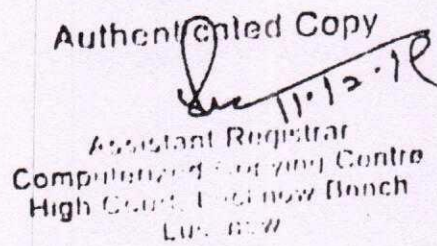 Authenticated Copy
11.12.18
Assistant Registrar
Computerized Copying Centre
High Court, Lucknow Bench
Lucknow